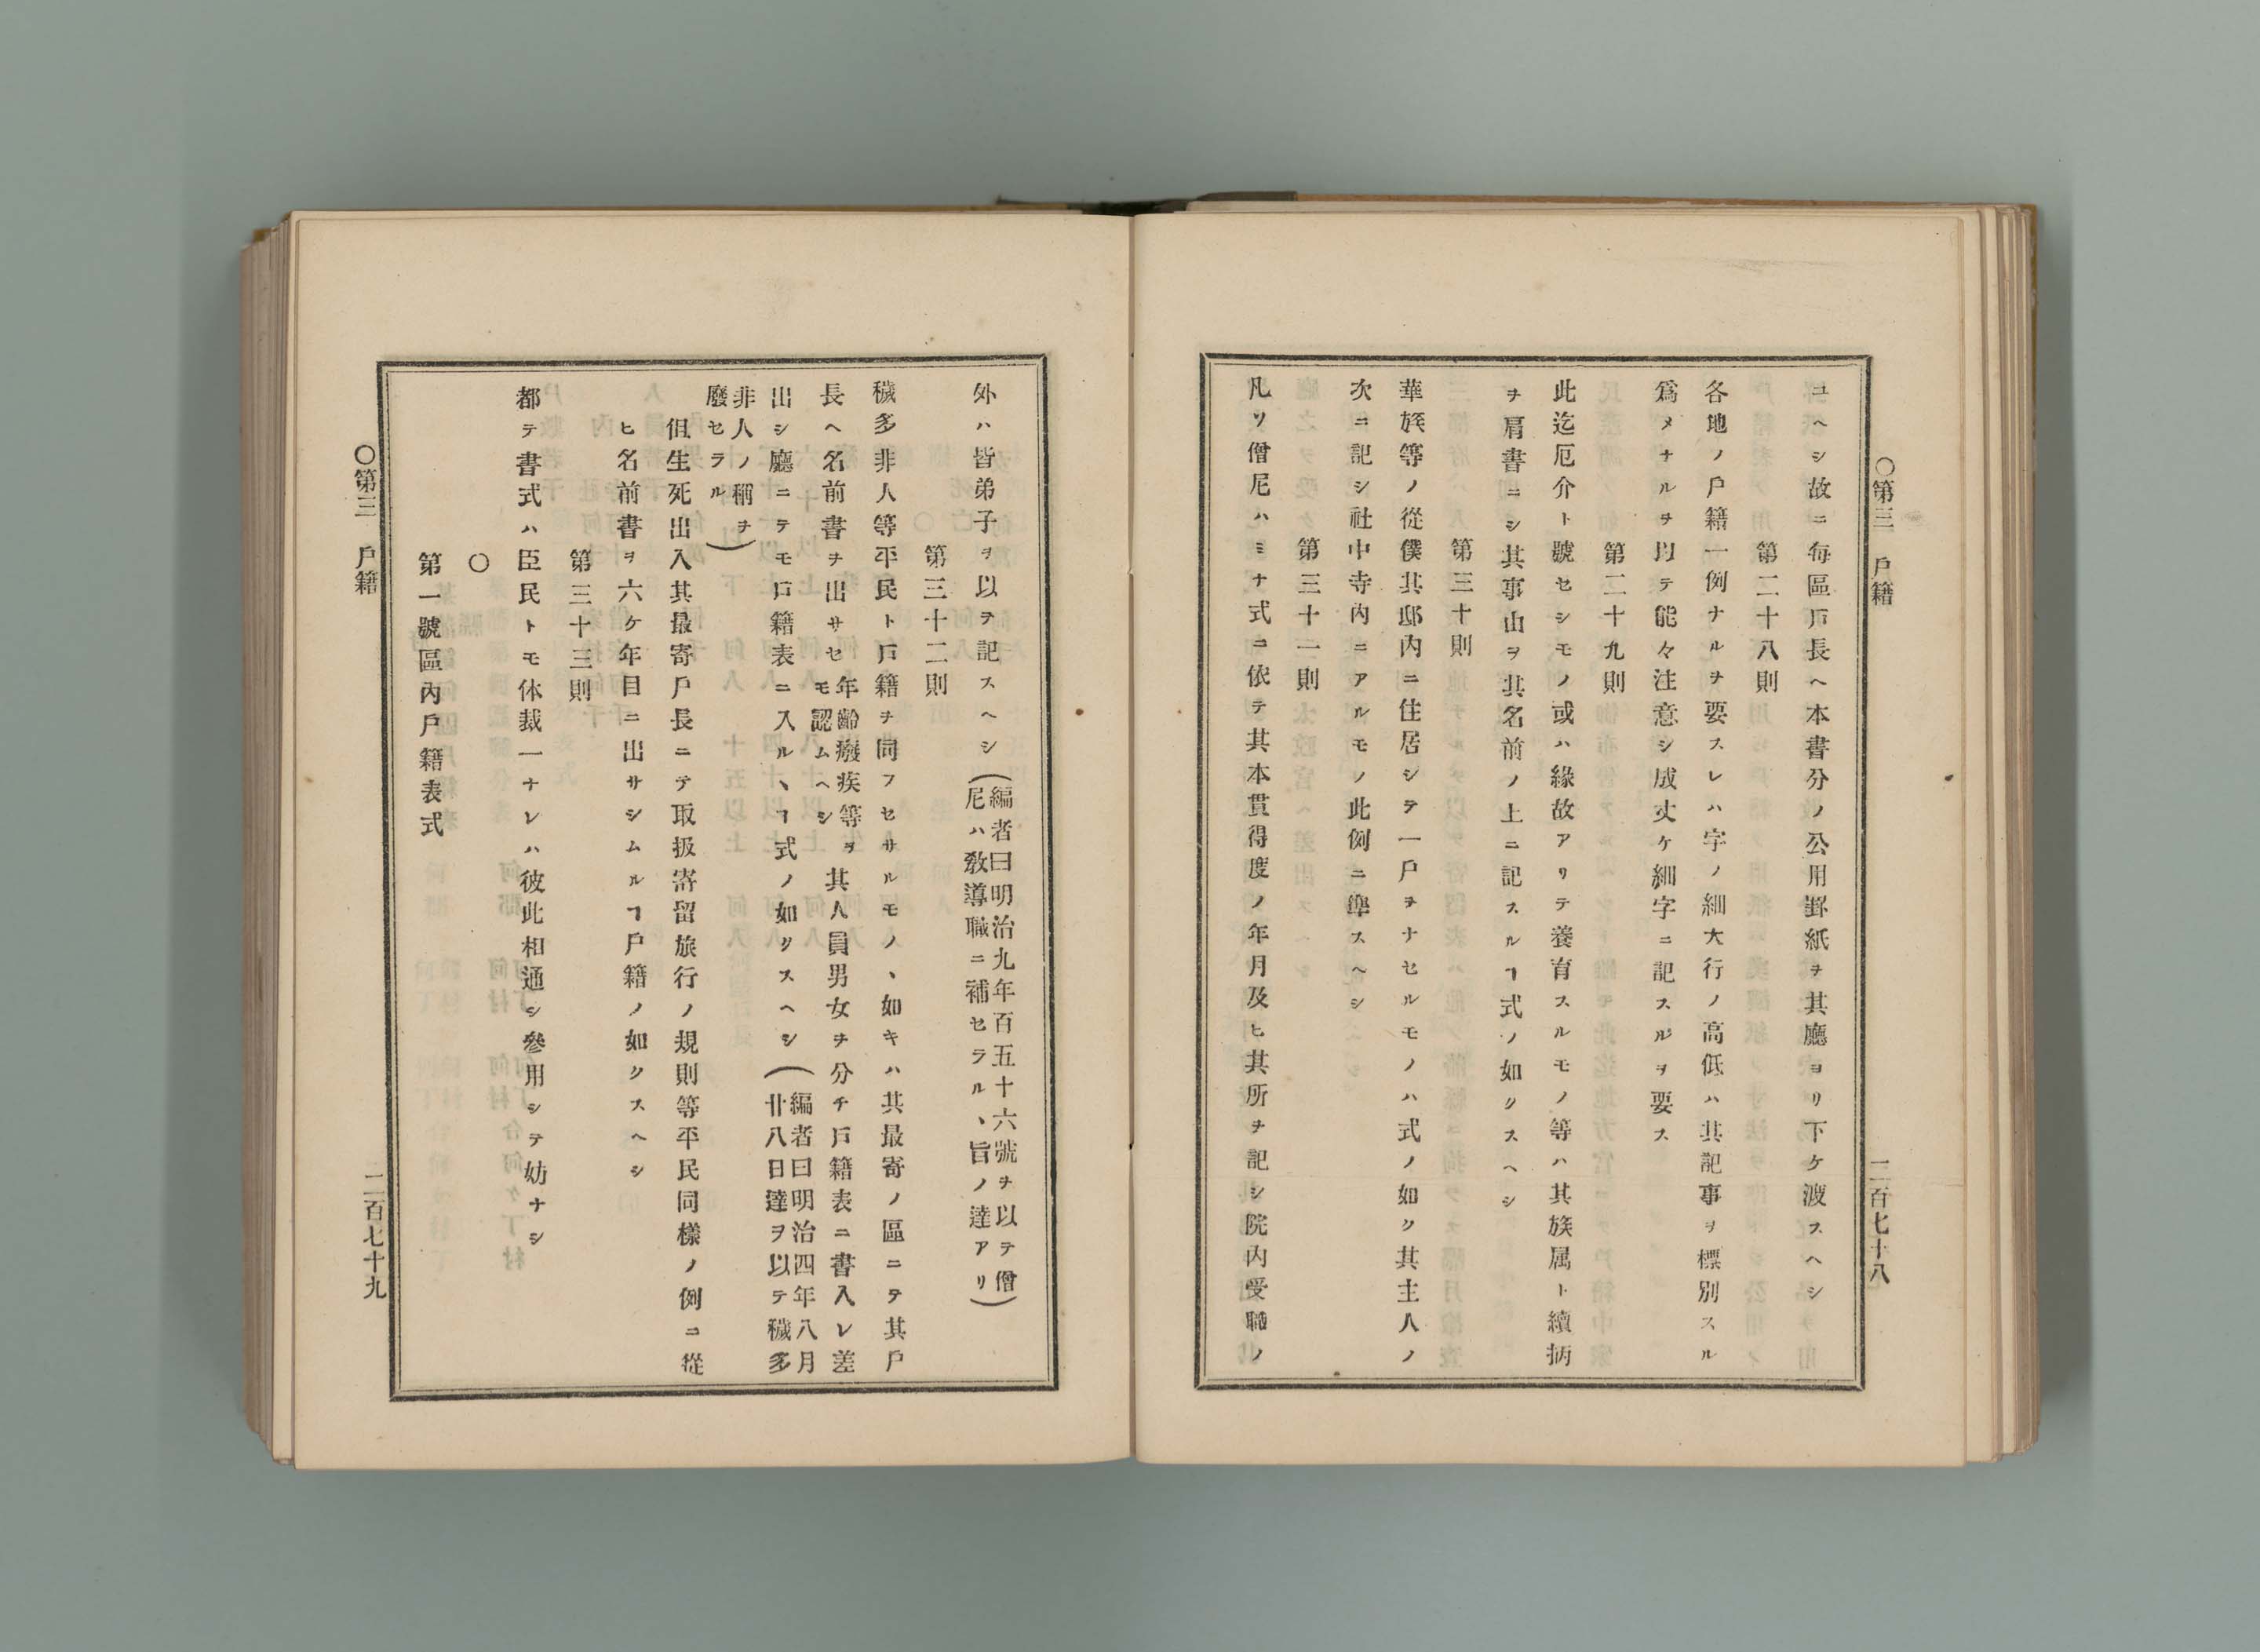 〇第三　戸籍
二百七十八
ユヘシ故ニ毎區戸長ヘ本書分ノ公用罫紙ヲ其廳ヨリ下ケ渡スヘシ
第二十八則
各地ノ戸籍一例ナルヲ要スレハ字ノ細大行ノ高低ハ其記事ヲ標別スル
爲メナルヲ以テ能々注意シ成丈ケ細字ニ記スルヲ要ス
第二十九則
此迄厄介ト號セシモノ或ハ緣故アリテ養育スルモノ等ハ其族属ト續柄
ヲ肩書ニシ其事由ヲ其名前ノ上ニ記スルヿ式ノ如クスヘシ
第三十則
華族等ノ從僕其邸內ニ住居シテ一戸ヲナセルモノハ式ノ如ク其主人ノ
次ニ記シ社中寺內ニアルモノ此例ニ準スヘシ
第三十一則
凡ソ僧尼ハミナ式ニ依テ其本貫得度ノ年月及ヒ其所ヲ記シ院內受職ノ
外ハ皆弟子ヲ以テ記スヘシ（編者曰明治九年百五十六號ヲ以テ僧
尼ハ敎導職ニ補セラルヽ旨ノ達アリ）
第三十二則
穢多非人等平民ト戸籍ヲ同フセサルモノヽ如キハ其最寄ノ區ニテ其戸
長ヘ名前書ヲ出サセ年齡癈疾等ヲ
モ認ムヘシ其人員男女ヲ分チ戸籍表ニ書入レ差
出シ廳ニテモ戸籍表ニ入ルヽヿ式ノ如クスヘシ（編者曰明治四年八月
廿八日達ヲ以テ穢多
非人ノ稱ヲ
廢セラル）
但生死出入其最寄戸長ニテ取扱寄留旅行ノ規則等平民同樣ノ例ニ從
ヒ名前書ヲ六ケ年目ニ出サシムルヿ戸籍ノ如クスヘシ
第三十三則
都テ書式ハ臣民トモ体裁一ナレハ彼此相通シ參用シテ妨ナシ
〇
第一號區內戸籍表式
〇第三　戸籍
二百七十九